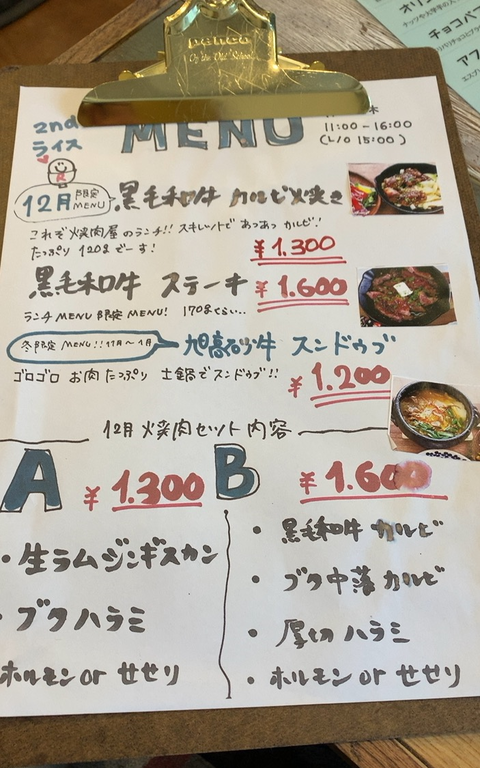 チョコバ
アフ
2nd
ライス
MENU
木
11:00-16:00
(L/O 15:00)
12月 限定 MENU
黒毛和牛 カルビ焼き
これぞ焼肉屋のランチ!! スキレットで あつあつ カルビ!
たっぷり 120gでーす!
¥1.300
黒毛和牛 ステーキ
¥1.600
ランチMENU 限定 MENU! 170gくらい...
冬限定 MENU!! 11月~1月
旭高砂牛 スンドゥブ
ゴロゴロ お肉 たっぷり 土鍋でスンドゥブ!!
¥1.200
12月 焼肉セット 内容
A ¥1.300
・生ラムジンギスカン
・ブタハラミ
ホルモン or せせり
B ¥1.600
・黒毛和牛 カルビ
・ブタ中落カルビ
・厚切ハラミ
・ホルモン or せせり